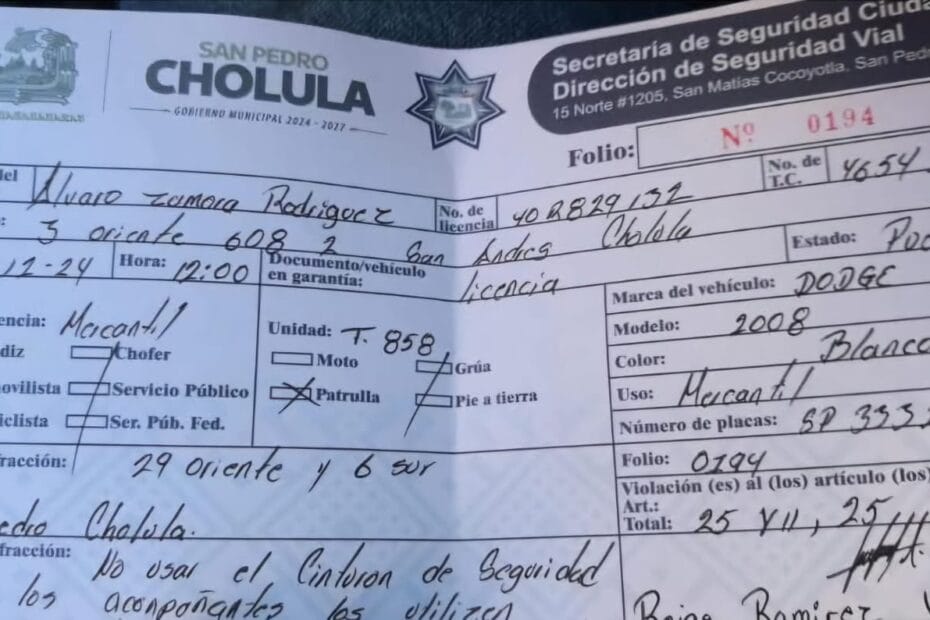 SAN PEDRO
CHOLULA
GOBIERNO MUNICIPAL 2024 - 2027
Secretaría de Seguridad Ciuda
Dirección de Seguridad Vial
15 Norte #1205, San Matías Cocoyotla, San Ped
Folio: Nº 0194
del Alvaro zamora Rodriguez No. de licencia 40R829132 No. de T.C. 4654
3 oriente 608 2 San Andres Cholula Estado:
12-24 Hora: 12:00 Documento/vehículo en garantía: licencia
Marca del vehículo: DODGE
encia: Mercantil Unidad: T. 858 Modelo: 2008
diz Chofer Moto Grúa Color: Blanco
ovilista Servicio Público Patrulla Pie a tierra Uso: Mercantil
iclista Ser. Púb. Fed. Número de placas: SP 333
racción: 29 oriente y 6 sur Folio: 0194
Violación (es) al (los) artículo (los)
Art.:
edro Cholula. Total: 25 VII, 25 III
fracción: No usar el Cinturon de Seguridad
los acompañantes los utilizen
Ramirez